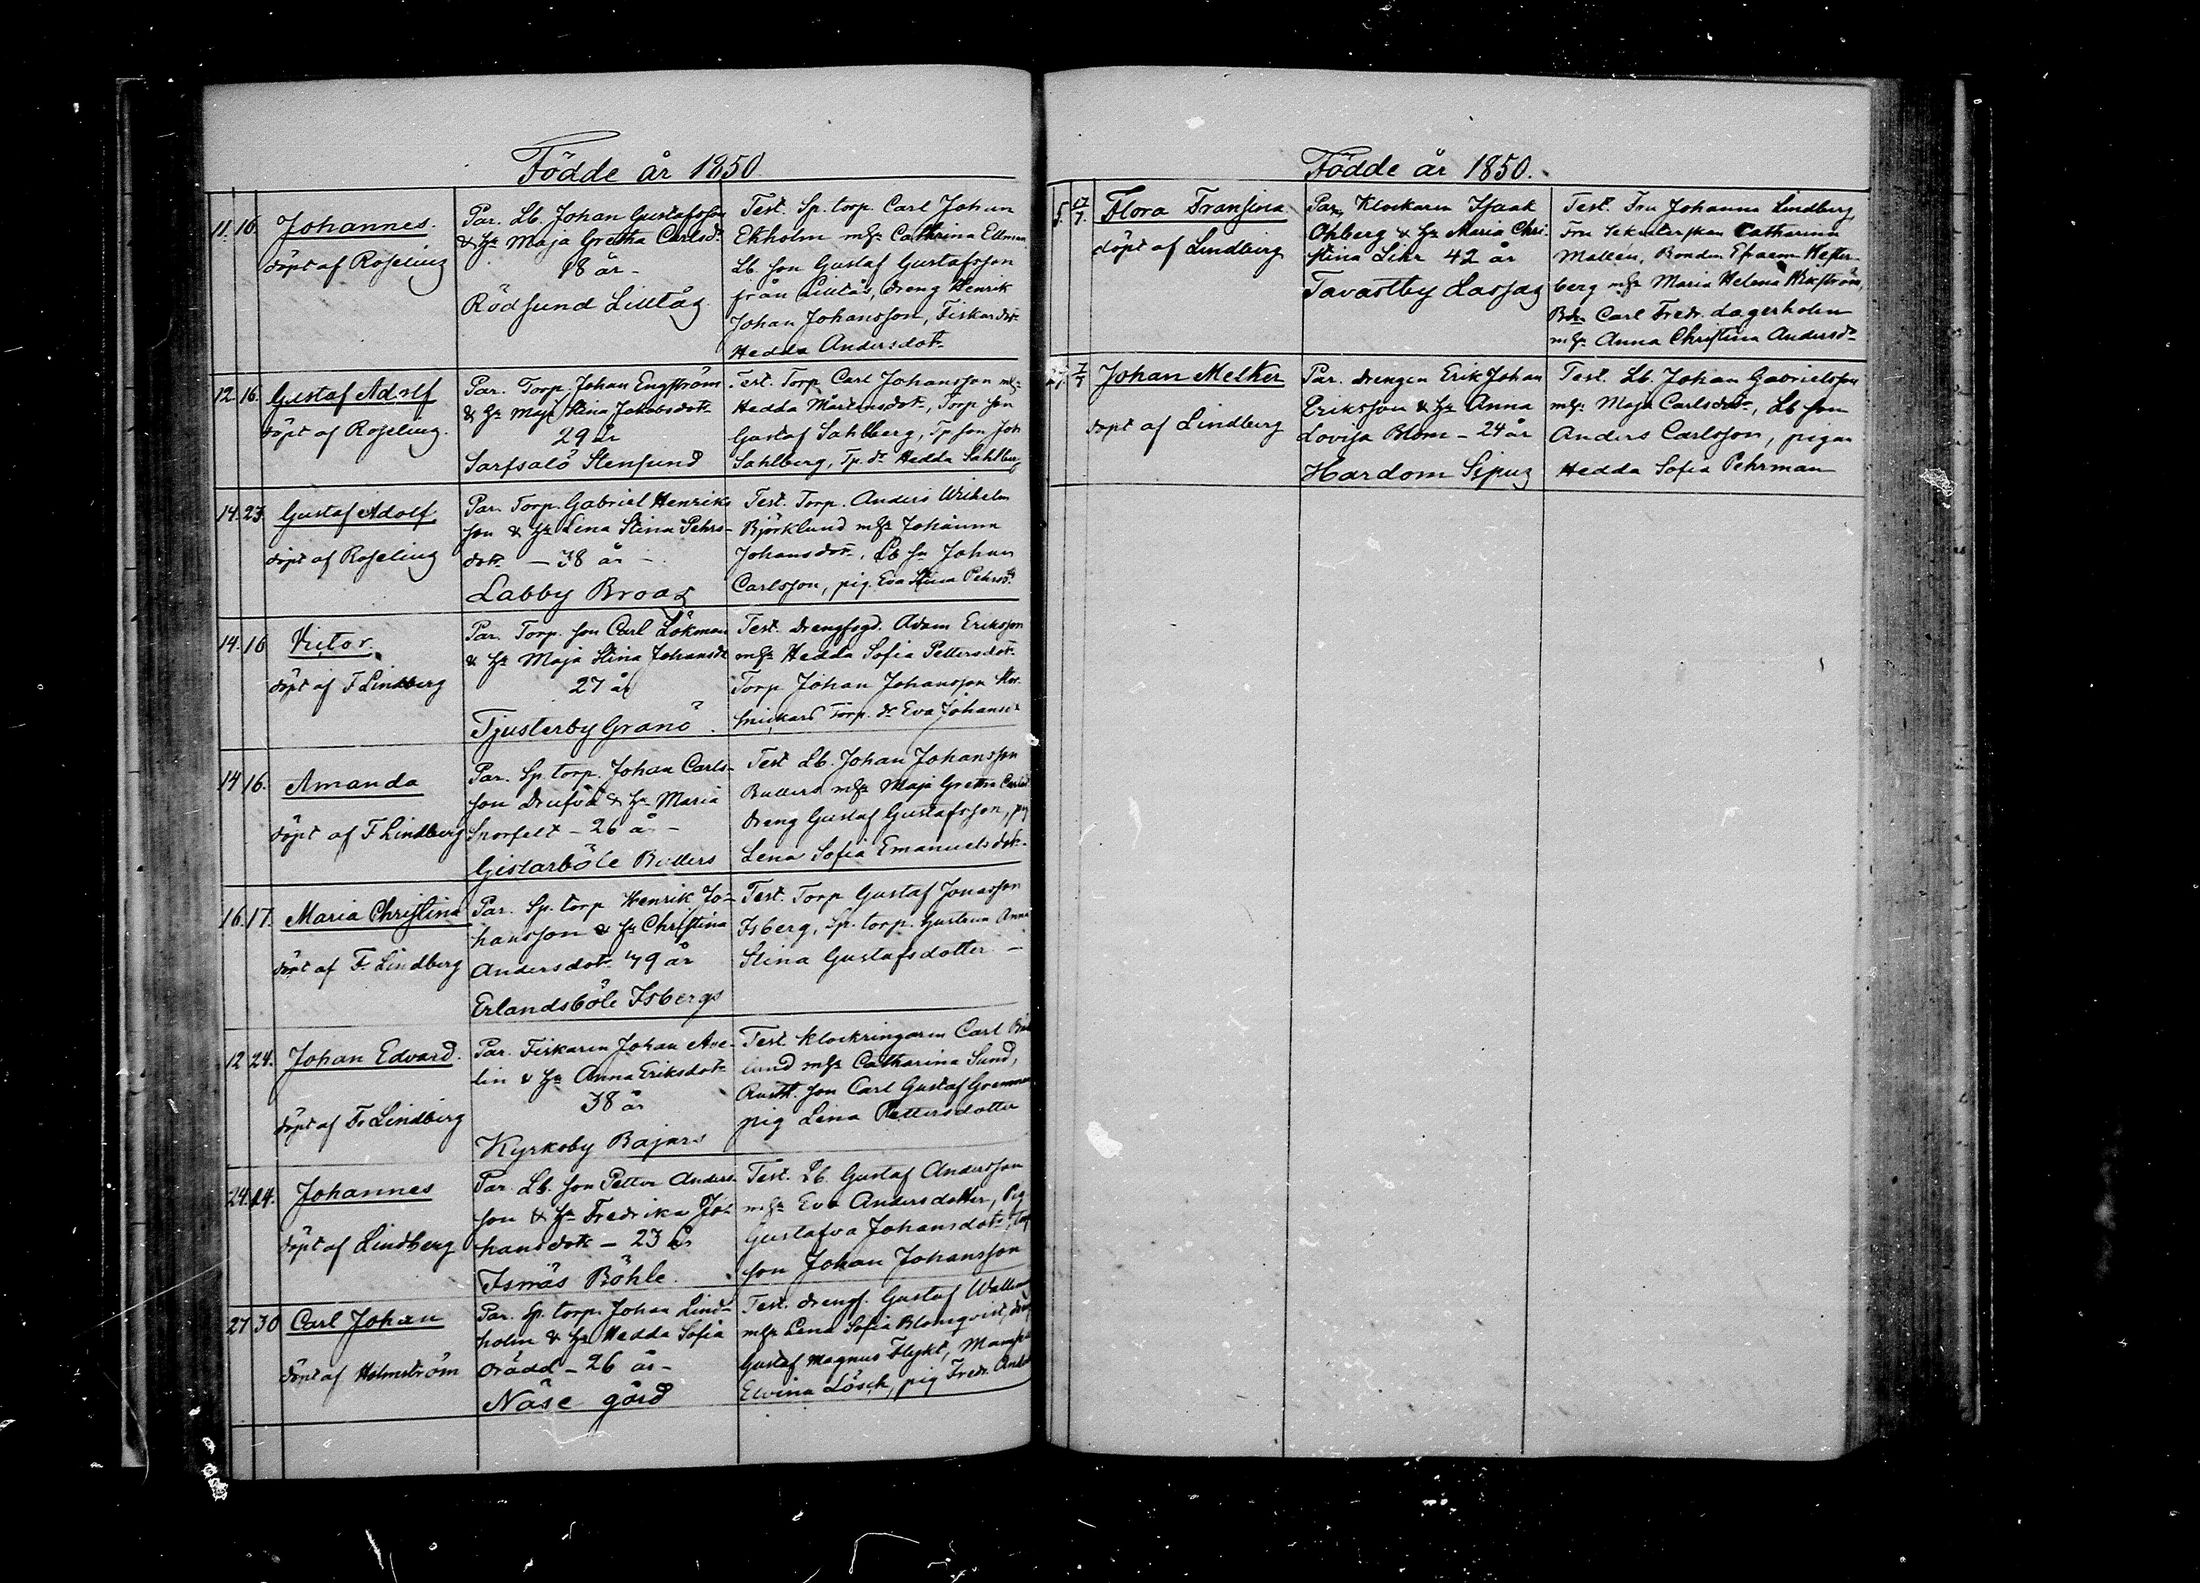 Födde år 1850.
11. 16. Johannes.
döpt af Roseling
Par. Lb. Johan Gustafsson
& Hu Maja Gretha Carlsdr
18 år -
Rödsund Lilltåg
Test. Sp. torp. Carl Johan
Ekholm m. Hu Cathrina Ellman
Lb. son Gustaf Gustafsson
från Lilltås, dreng Henrik
Johan Johansson, Fiskardotr
Hedda Andersdotr
12. 16. Gustaf Adolf
döpt af Roseling.
Par. Torp. Johan Engström
& Hu Maja Stina Jakobsdotr
29 år
Sarfsalö Stensund
Test. Torp Carl Johansson m Hu
Hedda Mårtensdotr, Torp son
Gustaf Sahlberg, Tp son Joh
Sahlberg, Tp. dr Hedda Sahlberg
14. 23. Gustaf Adolf
döpt af Roseling
Par. Torp. Gabriel Henriks
son & Hu Lena Stina Pehrs-
dotr - 38 år -
Labby Broas
Test. Torp. Anders Wilhelm
Björklund m Hu Johanna
Johansdotr, Lb sn Johan
Carlsson, pig. Eva Stina Pehrsd.
14. 16 Victor.
döpt af F Lindberg
Par. Torp. son Carl Lökman
& Hu Maja Stina Johansdr
27 år
Tjusterby Granö.
Test. drengfogd. Adam Eriksson
m Hu Hedda Sofia Pettersdotr
Torp Johan Johansson
snickars Torp. dr Eva Johansdr
14 16. Amanda
döpt af F Lindberg
Par. Sp. torp. Johan Carls-
son & Hu Maria
Snorfelt - 26 år -
Gislarböle Bullers
Test Lb. Johan Johansson
Bullers m Hu Maja Gretha Carlsd
dreng Gustaf Gustafsson, pig
Lena Sofia Emanuelsdotr
16. 17. Maria Christina
döpt af F. Lindberg
Par. Sp. torp Henrik Jo-
hansson & Hu Christina
Andersdotr 49 år
Erlandsböle Isbergs
Test. Torp Gustaf Jonasson
Isberg, Sp. torp. hustrun Anna
Stina Gustafsdotter -
12 24. Johan Edvard.
döpt af F. Lindberg
Par. Fiskaren Johan Ave-
lin & Hu Anna Eriksdotr
38 år
Kyrkoby Bajars
Test klockringaren Carl
lund m Hu Catharina Sund,
Rusth. son Carl Gustaf
pig Lena Pettersdotter
24. 24. Johannes
döpt af Lindberg
Par. Lb. son Petter Anders-
son & Hu Fredrika Jo-
hansdotr - 23 år
Isnäs Böhle.
Test. Lb. Gustaf Andersson
m Hu Eva Andersdotter, Pig
Gustafva Johansdotr, torp
son Johan Johansson
27 30 Carl Johan
döpt af Holmström
Par. Sp. torp. Johan Lind-
holm & Hu Hedda Sofia
Orädd - 26 år -
Näse gård
Test. drengf. Gustaf
m Hu Lena Sofia Blomqvist,
Gustaf Magnus Flykt, Mamsell
Elvina Lösch, pig Fredr.
Födde år 1850.
5. 17/7. Flora Fransina
döpt af Lindberg
Par. Klockaren Isaak
Ohberg & Hu Maria Chri-
stina Lihr 42 år
Tavastby Lassas
Test. Fru Johanna Lindberg
Fru Sekreterskan Catharina
Mallén, Bonden Efraem Hester-
berg m Hu Maria Helena Wikström,
Bdn Carl Fredr. Lagerholm
m Hu Anna Christina Andersdr
7/7 Johan Melker
döpt af Lindberg
Par. drengen Erik Johan
Eriksson & Hu Anna
Lovisa Blom - 24 år
Hardom Sipus
Test. Lb. Johan Gabrielsson
m Hu Maja Carlsdotr, Lb son
Anders Carlsson, pigan
Hedda Sofia Pehrman